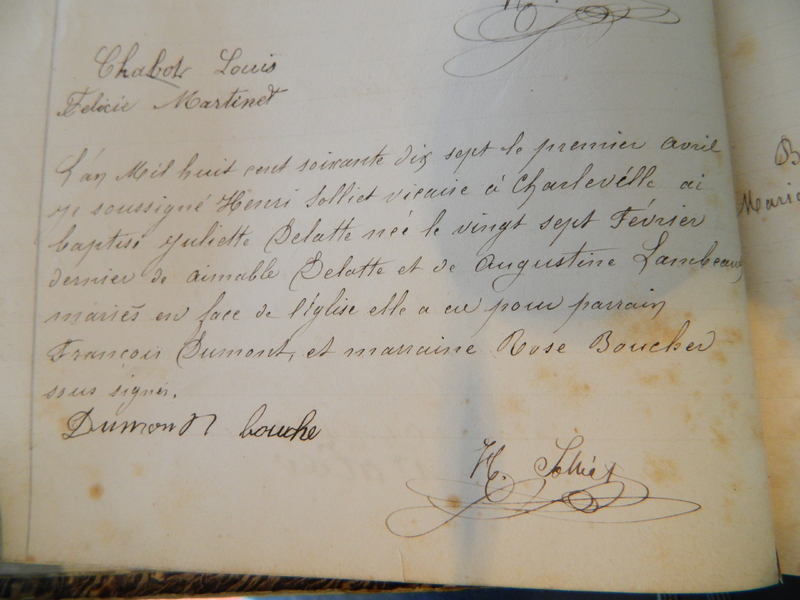 H.
Chabot Louis
Felicie Martinet
L'an Mil huit cent soixante dix sept le premier avril
je soussigné Henri Solliet vicaire à Charleville ai
baptisé Juliette Delatte née le vingt sept Février
dernier de aimable Delatte et de Augustine Lambeaux
mariés en face de l'église elle a eu pour parrain
François Dumont, et marraine Rose Boucher
sous signés.
Dumont bouche
H. Solliet
B
Marie